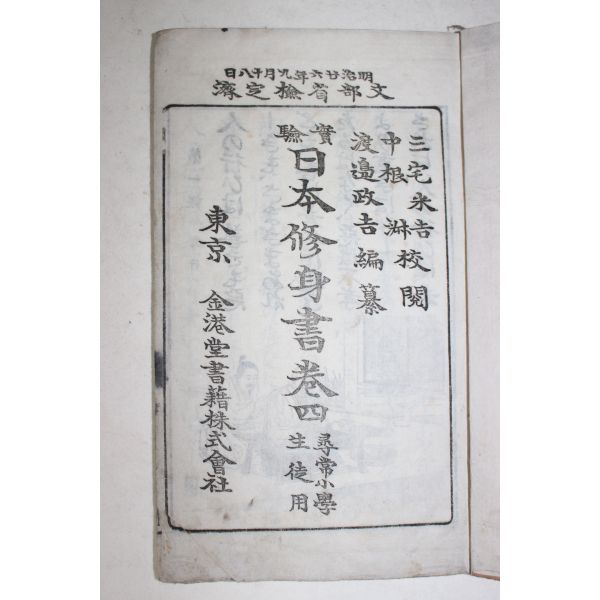 明治廿六年九月十八日
文部省檢定濟
三宅米吉
中根淑校閲
渡邉政吉編纂
實驗
日本修身書卷四
尋常小學
生徒用
東京 金港堂書籍株式會社